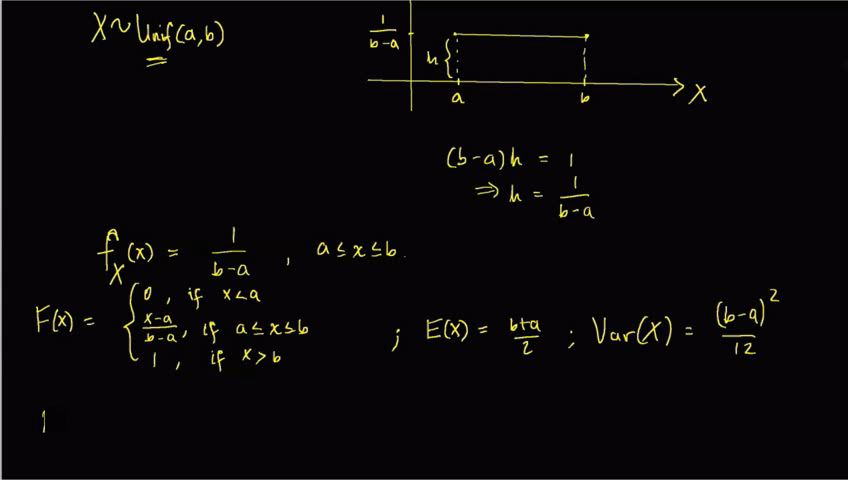 X ~ Unif(a,b)
1/(b-a)
h {
a b X
(b-a)h = 1
⇒ h = 1/(b-a)
f_X(x) = 1/(b-a) , a ≤ x ≤ b.
F(x) = { 0 , if x < a
(x-a)/(b-a), if a ≤ x ≤ b
1 , if x > b
; E(X) = (b+a)/2 ; Var(X) = (b-a)²/12